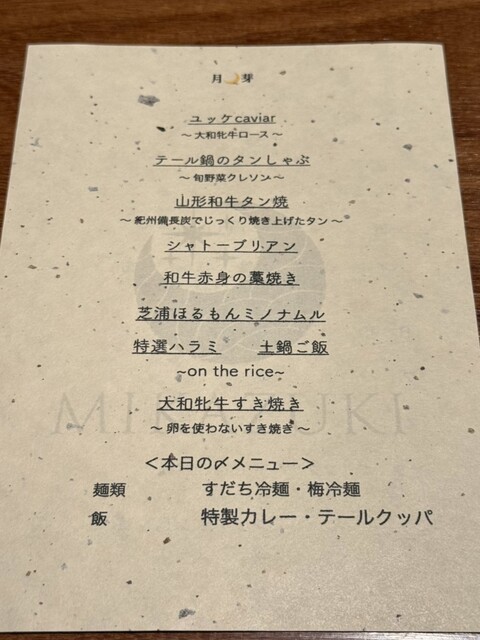 月🌙芽
ユッケcaviar
～大和牝牛ロース～
テール鍋のタンしゃぶ
～旬野菜クレソン～
山形和牛タン焼
～紀州備長炭でじっくり焼き上げたタン～
シャトーブリアン
和牛赤身の藁焼き
芝浦ほるもんミノナムル
特選ハラミ 土鍋ご飯
~on the rice~
大和牝牛すき焼き
～卵を使わないすき焼き～
＜本日の〆メニュー＞
麺類 すだち冷麺・梅冷麺
飯 特製カレー・テールクッパ